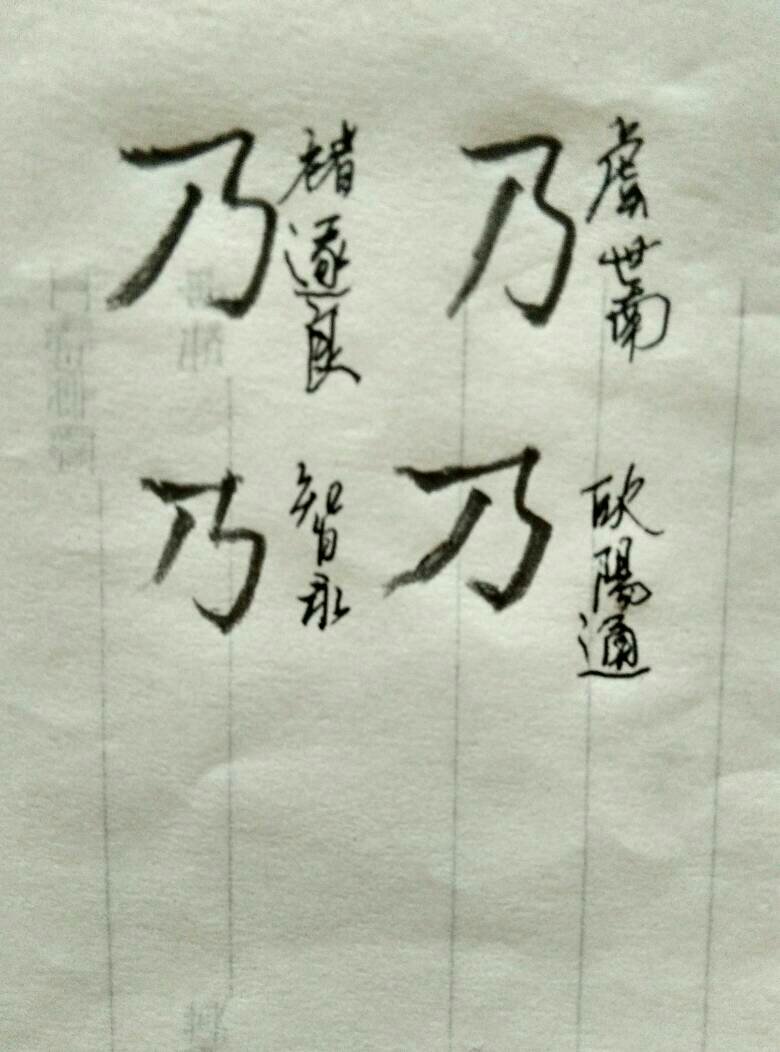 乃 褚遂良
乃 虞世南
乃 智永
乃 欧陽通